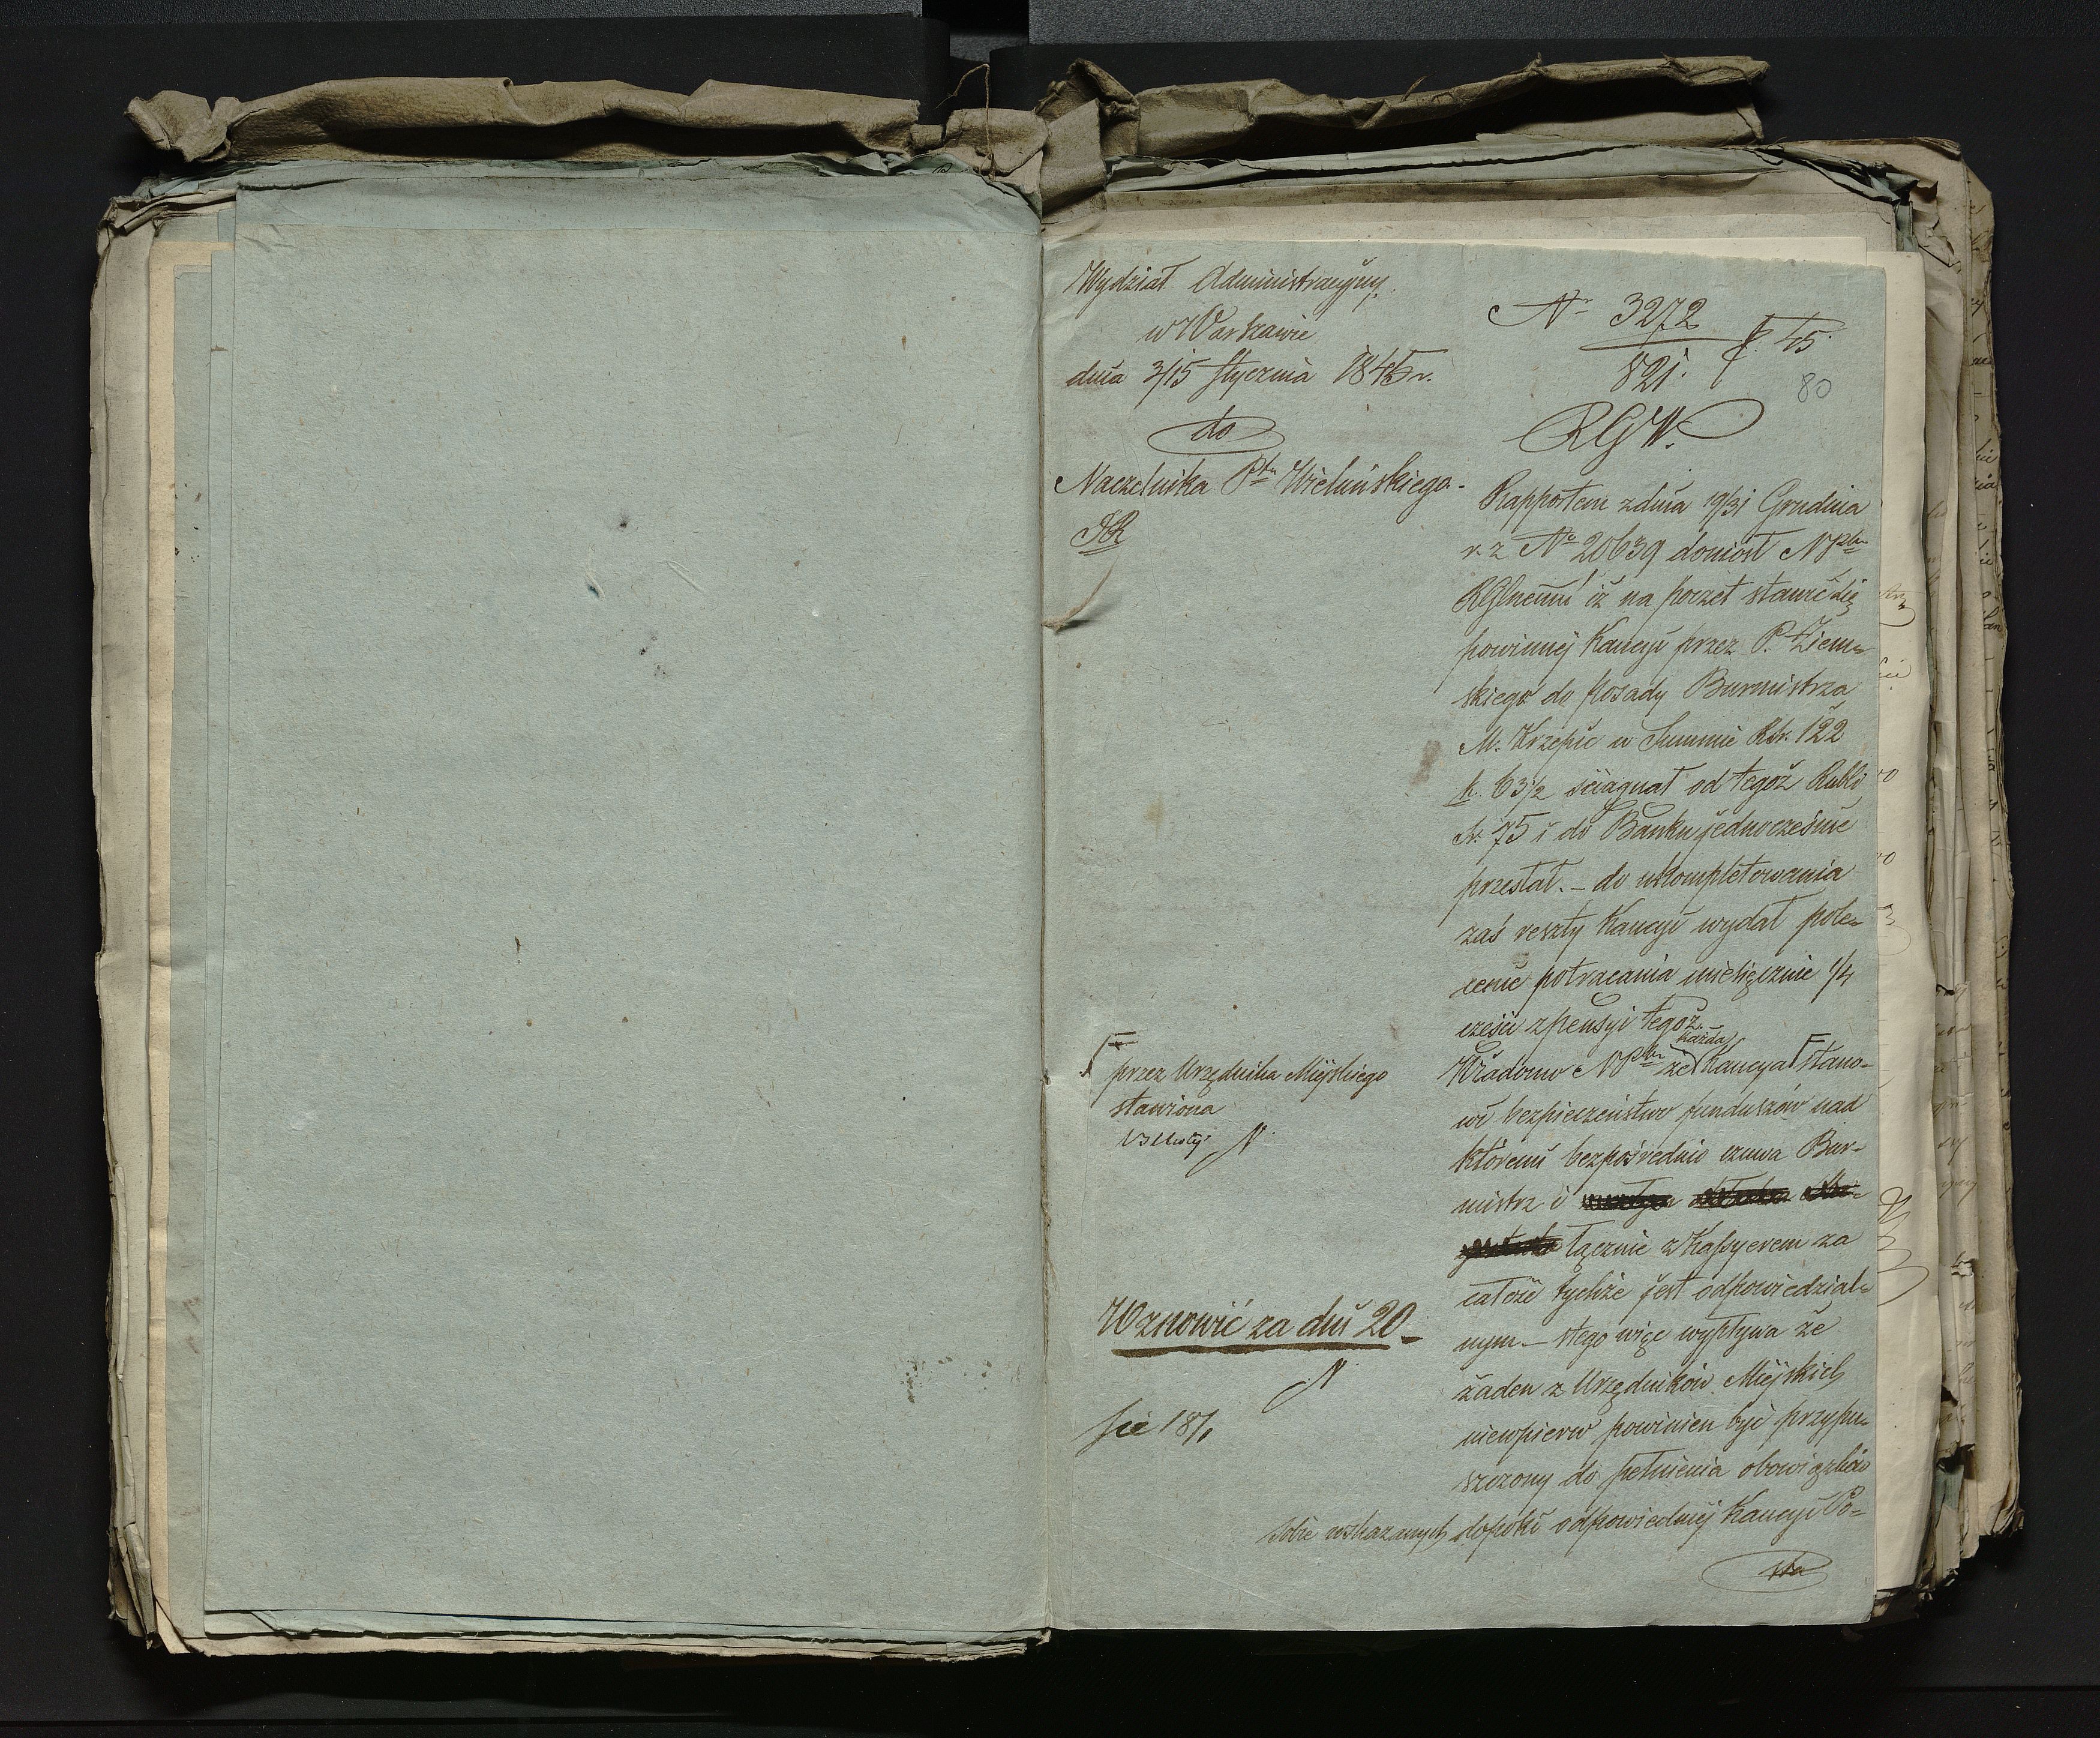 Wydział Administracyjny.
w Warszawie
dnia 3/15 Stycznia 1845 r.
do
Naczelnika Ptu Wieluńskiego.
Nr 3272
821.
45.
80
RGW.
Rapportem z dnia 19/31 Grudnia
r. z No 20639 doniosł NPtu
RGlnemu iż na poczet stawić się
powinnéj Kaucyi przez P. Ziem-
skiego do posady Burmistrza
M. Krzepic w Summie Rsr. 122
k. 63½ ściągnął od tegoż Rubli
sr. 75 i do Banku jednocześnie
przesłał. – do ukompletowania
zaś reszty Kaucyi wydał pole-
cenie potrącania miesięcznie 1/4
części z pensyi tegoż.
każda
Wiadomo NPtu że Kaucya stano-
wi bezpieczeństwo funduszów nad
któremi bezpośrednio czuwa Bur-
mistrz i
łącznie z Kassyerem za
całość tychże jest odpowiedzial-
nym – z tego więc wypływa że
żaden z Urzędników Miejskich
niewpierw powinien być przypu-
szczony do pełnienia obowiązków
sobie wskazanych dopóki odpowiedniéj Kaucyi Po-
sta
przez Urzędnika Miejskiego
stawiona
N.
Wznowić za dni 20
N